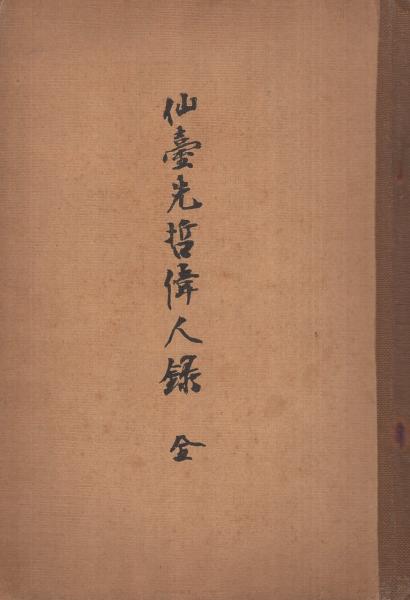 仙臺先哲偉人録 全